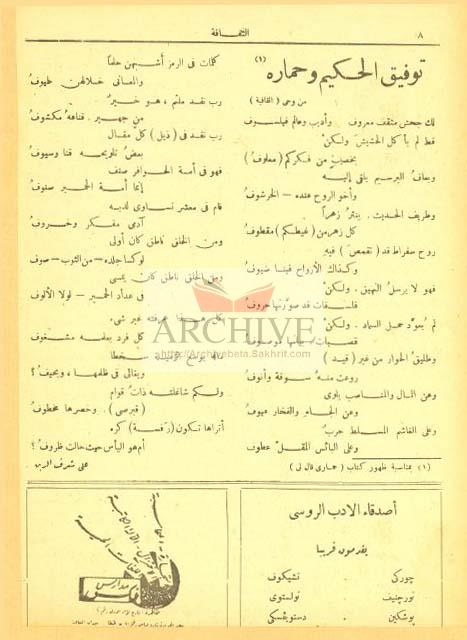 ٨
الثقافة
توفيق الحكيم وحماره (١)
من وحى (القافية)
لك جحش مثقف معروف وأديب وعالم فيلسوف
قط لم يأكل الحشيش ولكن
بخصيب من فكركم (معلوف)
ويعاف البرسيم يلقى إليه
وأخو الروح عنده — الخرشوف
وظريف الحديث. ينثر زهراً
كل زهر من (غيطكم) مقطوف
روح سقراط قد (تقمص) فيه
وكذاك الأرواح فينا ضيوف
فهو لا يرسل النهيق. ولكن
فلسفات قد صورتها حروف
لم يعود حمل السماد. ولكن
وطليق الحوار من غير (قيد)
روعت منه سوقة وأنوف
وعن المال والمناصب يلوى
وعن الجاه والفخار عيوف
وعلى الغاشم المسلط حرب
وعلى البائس المقل عطوف
(١) بمناسبة ظهور كتاب (حمارى قال لى)
كلمات فى الرمز أشبهن حلماً
والمعانى خلالهن طيوف
رب نقد ملثم، هو خير
من جهير. قناعه مكشوف
رب نقد فى (ذيل) كل مقال
بعض تلويحه قنا وسيوف
فهو فى أمة الحوافر صنف
إنما أمة الحمير صنوف
قام فى معشر تساوى لديه
آدمى مفكر وخروف
ومن الخلق ناطق كان أولى
لو كسا جلده — من الثوب — صوف
ومن الخلق ناطق كان يمسى
فى عداد الحمير — لولا الألوف
كل فرد بعلمه مشغوف
ويغالى فى ظلمها، ويحيف؟
ولكم شاغلته ذات قوام
(فبرسى). وخصرها مخطوف
أتراها تكون (رفسة) كره
أم هو اليأس حيث حالت ظروف؟
على شرف الدين
ARCHIVE
http://Archivebeta.Sakhrit.com
أصدقاء الادب الروسى
يقدمون قريبا
جوركى تشيكوف
تورجنيف تولستوى
بوشكين دستويفسكى
مدارس